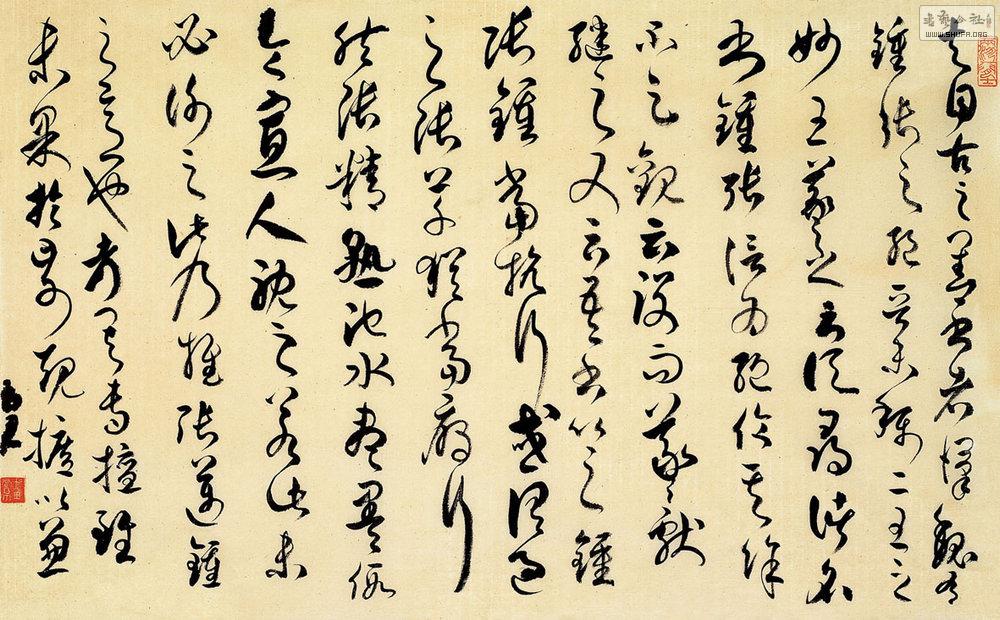 夫自古之善書者漢魏有
鍾張之絕晉末稱二王之
妙王羲之云頃尋諸名
書鍾張信為絕倫其餘
不足觀云沒而羲獻
繼之又云吾書比之鍾
張鍾當抗行或謂過
之張草猶當雁行
然張精熟池水盡墨假
令寡人耽之若此未
必謝之此乃推張邁鍾
之意也考其專擅雖
未果於前規摭以兼
书艺公社
WWW.SHUFA.ORG